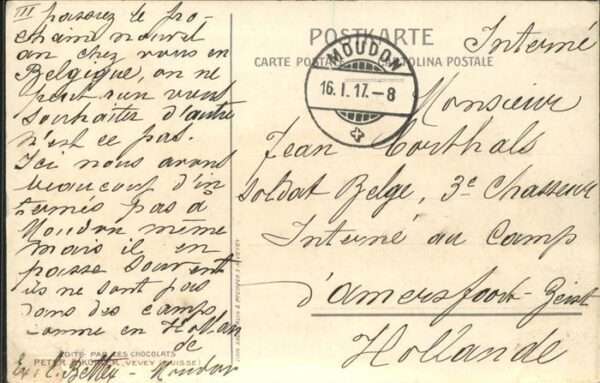 III passez le pro-
chain nouvel
an chez vous en
Belgique, on ne
peut rien vous
souhaiter d'autre
n'est ce pas.
Ici nous avons
beaucoup d'in
ternés pas à
Moudon même
mais il en
passe souvent
ils ne sont pas
dans des camps
comme en Hollan
de
Moudon
POSTKARTE
CARTE POSTALE CARTOLINA POSTALE
MOUDON
16. I. 17. – 8
Interné
Monsieur
Jean Corthals
Soldat Belge, 3e Chasseur
Interné au Camp
d'amersfoort-Zeist
Hollande
ÉDITÉ PAR LES CHOCOLATS
PETER & KOHLER, VEVEY (SUISSE)